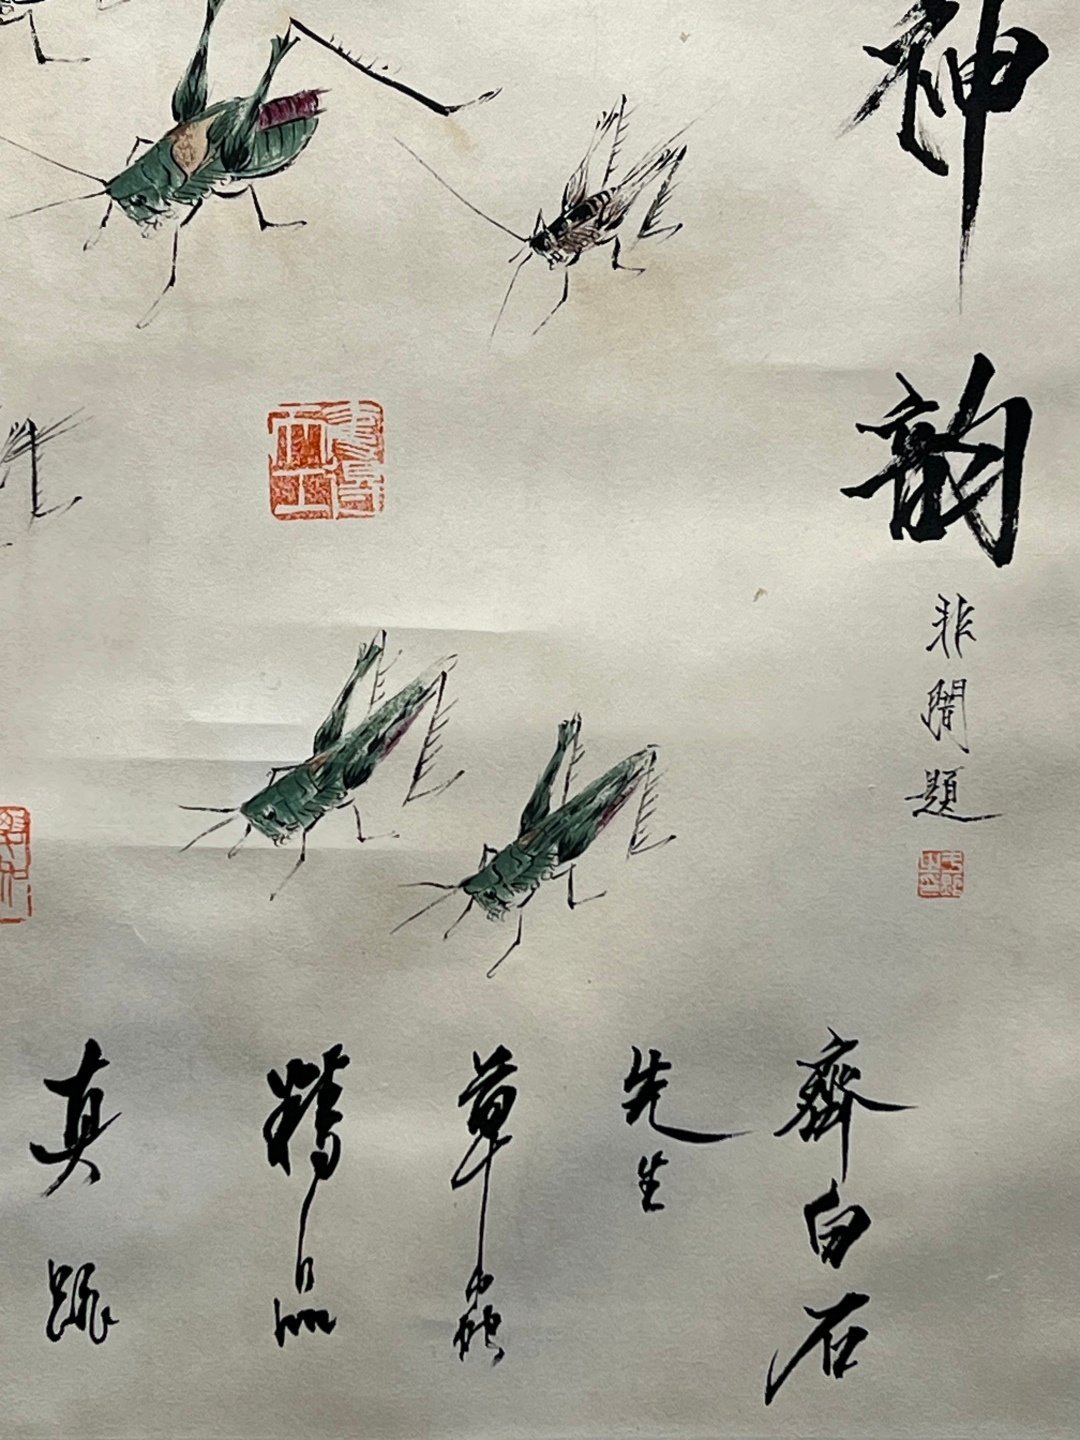 神韵
非闇題
齊白石
先生
草蟲
精品
真跡